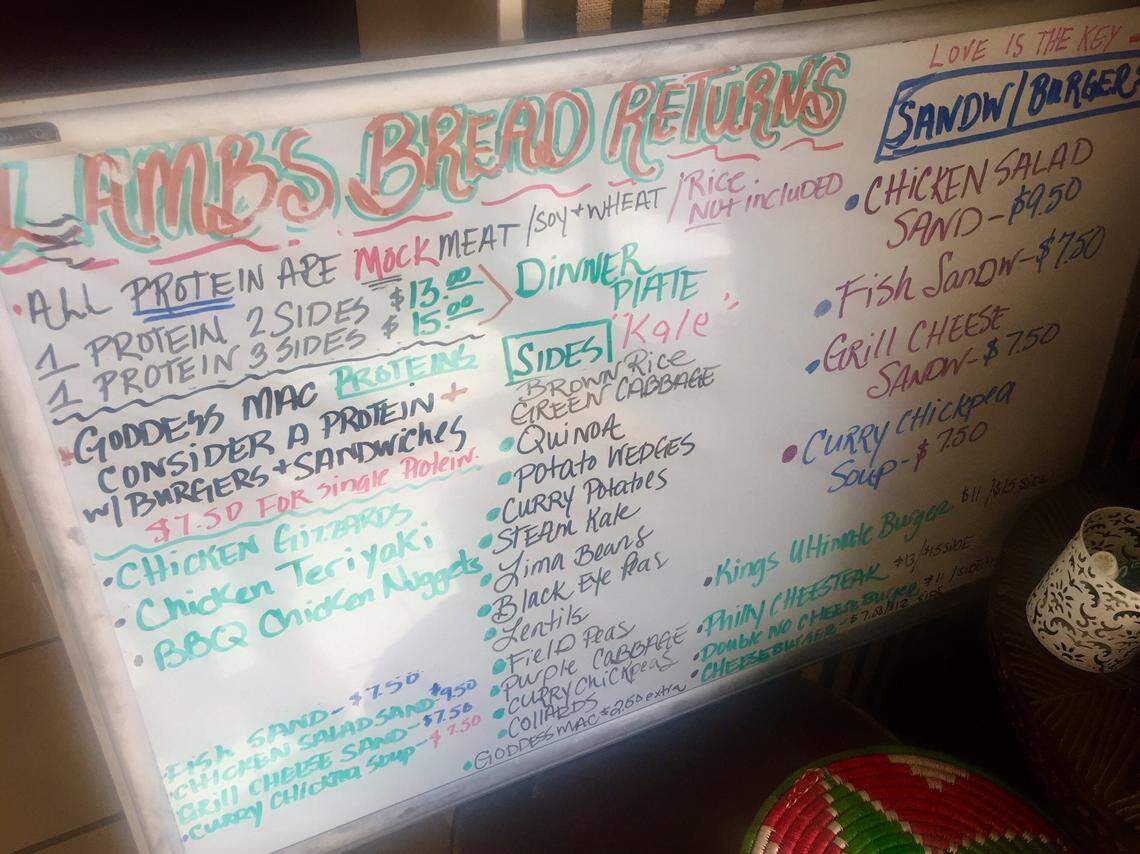 LOVE IS THE KEY
LAMBS BREAD RETURNS
• ALL PROTEIN ARE MOCK MEAT / SOY + WHEAT / RICE.
NOT included
1 PROTEIN 2 SIDES $13.00
1 PROTEIN 3 SIDES $15.00
DINNER
PLATE
PROTEINS
• GODDESS MAC
CONSIDER A PROTEIN +
w/ BURGERS + SANDWICHES
$7.50 FOR Single Protein.
• CHICKEN GIZZARDS
• Chicken Teriyaki
• BBQ Chicken Nuggets
FISH SAND - $7.50
CHICKEN SALAD SAND - $9.50
GRILL CHEESE SAND - $7.50
• CURRY CHICKPEA SOUP - $7.50
SIDES
"Kale"
BROWN RICE
GREEN CABBAGE
• QUINOA
• POTATO WEDGES
• CURRY POTATOES
• STEAM Kale
• Lima Beans
• Black Eye Peas
• Lentils
• FIELD PEAS
• PURPLE CABBAGE
• CURRY CHICKPEAS
• COLLARDS
• GODDESS MAC $2.50 extra
SANDW/BURGERS
• CHICKEN SALAD
SAND - $9.50
• FISH SANDW - $7.50
• GRILL CHEESE
SANDW - $7.50
• CURRY CHICKPEA
SOUP - $7.50
• Kings Ultimate Burger $11 / $15 SIDE
• PHILLY CHEESTEAK $13 / $15 SIDE
• DOUBLE NO CHEESE BURGER $11 / SIDE
• CHEESEBURGER - $7.50 / $12 SIDE